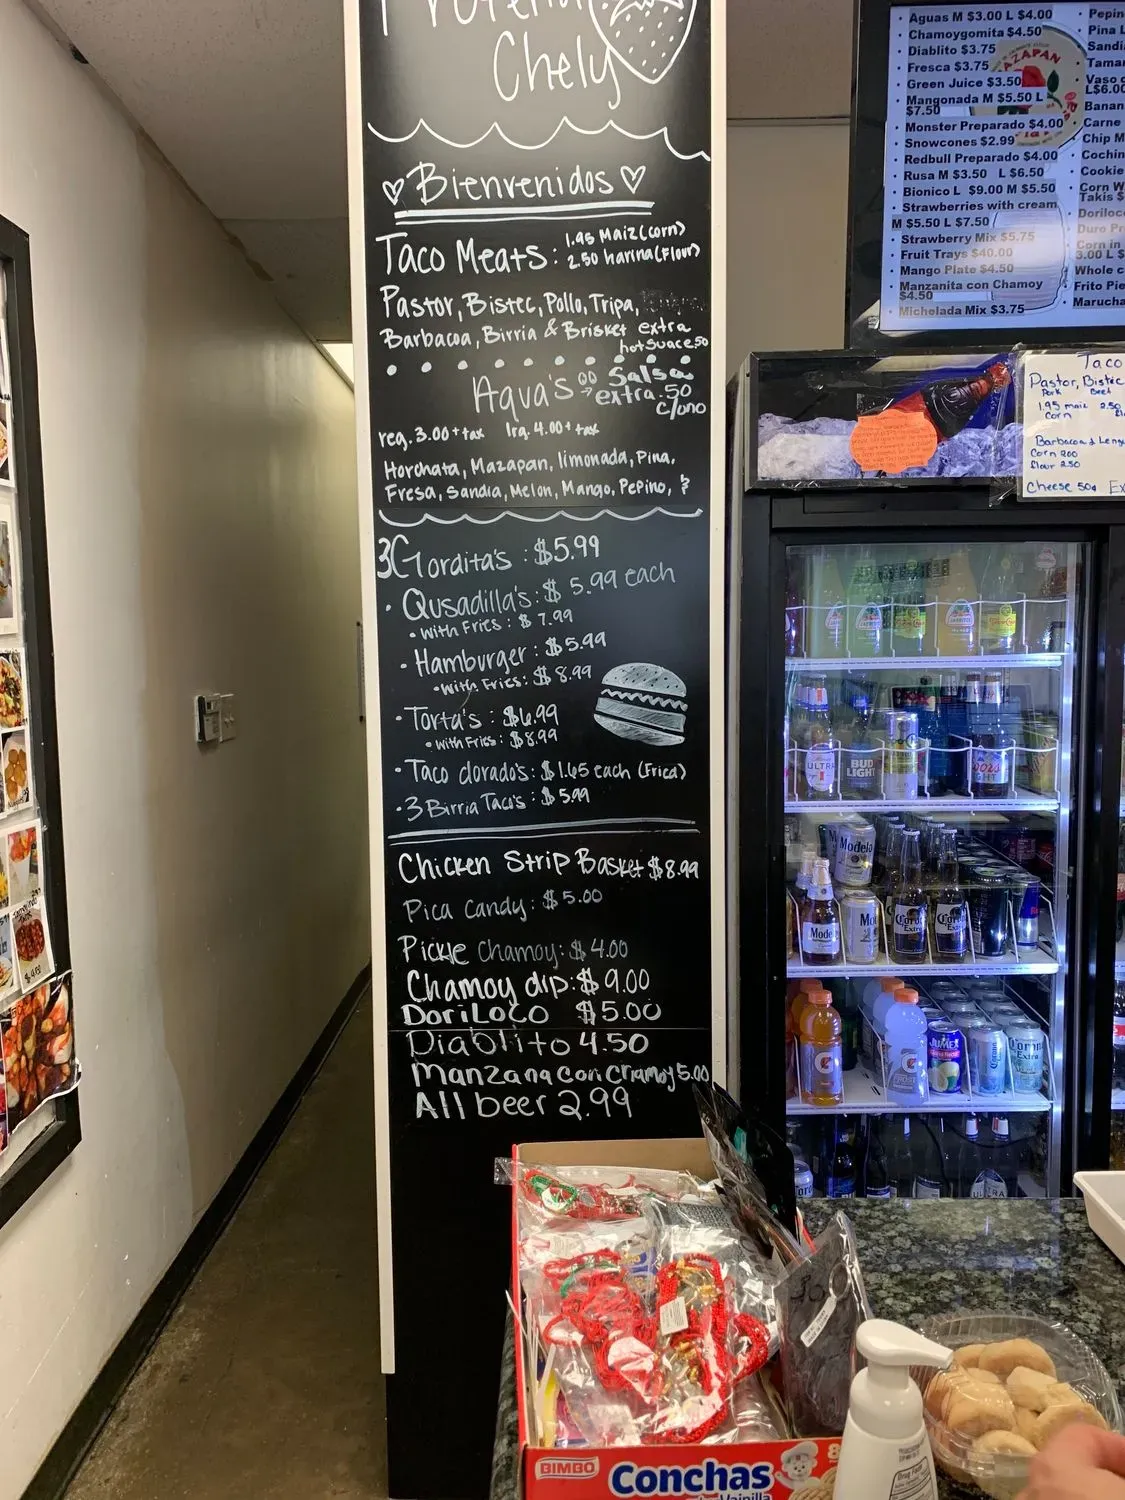 Chely
Bienvenidos
Taco Meats: 1.95 Maiz (corn)
2.50 harina (Flour)
Pastor, Bistec, Pollo, Tripa,
Barbacoa, Birria & Brisket extra
hot suace .50
Aqua's
Salsa
extra .50
c/uno
reg. 3.00 + tax lrg. 4.00 + tax
Horchata, Mazapan, limonada, Pina,
Fresa, Sandia, Melon, Mango, Pepino, &
3 Gordita's : $5.99
• Qusadilla's: $ 5.99 each
• with Fries: $ 7.99
• Hamburger: $5.99
• with Fries: $8.99
• Torta's : $6.99
• with Fries : $8.99
• Taco dorado's: $1.65 each (Frica)
• 3 Birria Taco's: $5.99
Chicken Strip Basket $8.99
Pica Candy: $5.00
Pickle Chamoy: $4.00
Chamoy dip: $ 9.00
DoriLoco $5.00
Diablito 4.50
Manzana con Chamoy 5.00
All beer 2.99
• Aguas M $3.00 L $4.00
• Chamoygomita $4.50
• Diablito $3.75
• Fresca $3.75
• Green Juice $3.50
• Mangonada M $5.50 L
$7.50
• Monster Preparado $4.00
• Snowcones $2.99
• Redbull Preparado $4.00
• Rusa M $3.50 L $6.50
• Bionico L $9.00 M $5.50
• Strawberries with cream
M $5.50 L $7.50
• Strawberry Mix $5.75
• Fruit Trays $40.00
• Mango Plate $4.50
• Manzanita con Chamoy
$4.50
• Michelada Mix $3.75
• Pepin
• Pina L
• Sandi
• Tamar
• Vaso
L$6.00
• Banan
• Carne
• Chip M
• Cochin
• Cookie
• Corn W
Takis $
• Doriloc
• Duro Pr
• Corn in
3.00 L $
• Whole c
• Frito Pie
• Marucha
Taco
Pastor, Bistec
Pork Beef
1.95 maiz 2.50
Corn
Barbacoa Leng
Corn
flour 2.50
Cheese 50¢ Ex
ULTRA
BUD
LIGHT
Coors
LIGHT
Modelo
Corona
Extra
Corona
Extra
G
G
FROST
JUMEX
Corona
Extra
ULTRA
BIMBO
Conchas
Vainilla